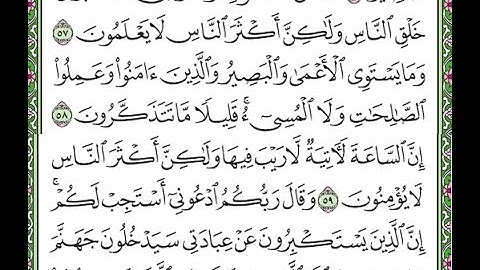 خَلْقِ ٱلنَّاسِ وَلَٰكِنَّ أَكْثَرَ ٱلنَّاسِ لَا يَعْلَمُونَ ٥٧
وَمَا يَسْتَوِى ٱلْأَعْمَىٰ وَٱلْبَصِيرُ وَٱلَّذِينَ ءَامَنُوا۟ وَعَمِلُوا۟
ٱلصَّٰلِحَٰتِ وَلَا ٱلْمُسِىٓءُ ۚ قَلِيلًا مَّا تَتَذَكَّرُونَ ٥٨
إِنَّ ٱلسَّاعَةَ لَءَاتِيَةٌ لَّا رَيْبَ فِيهَا وَلَٰكِنَّ أَكْثَرَ ٱلنَّاسِ
لَا يُؤْمِنُونَ ٥٩ وَقَالَ رَبُّكُمُ ٱدْعُونِىٓ أَسْتَجِبْ لَكُمْ ۚ
إِنَّ ٱلَّذِينَ يَسْتَكْبِرُونَ عَنْ عِبَادَتِى سَيَدْخُلُونَ جَهَنَّمَ